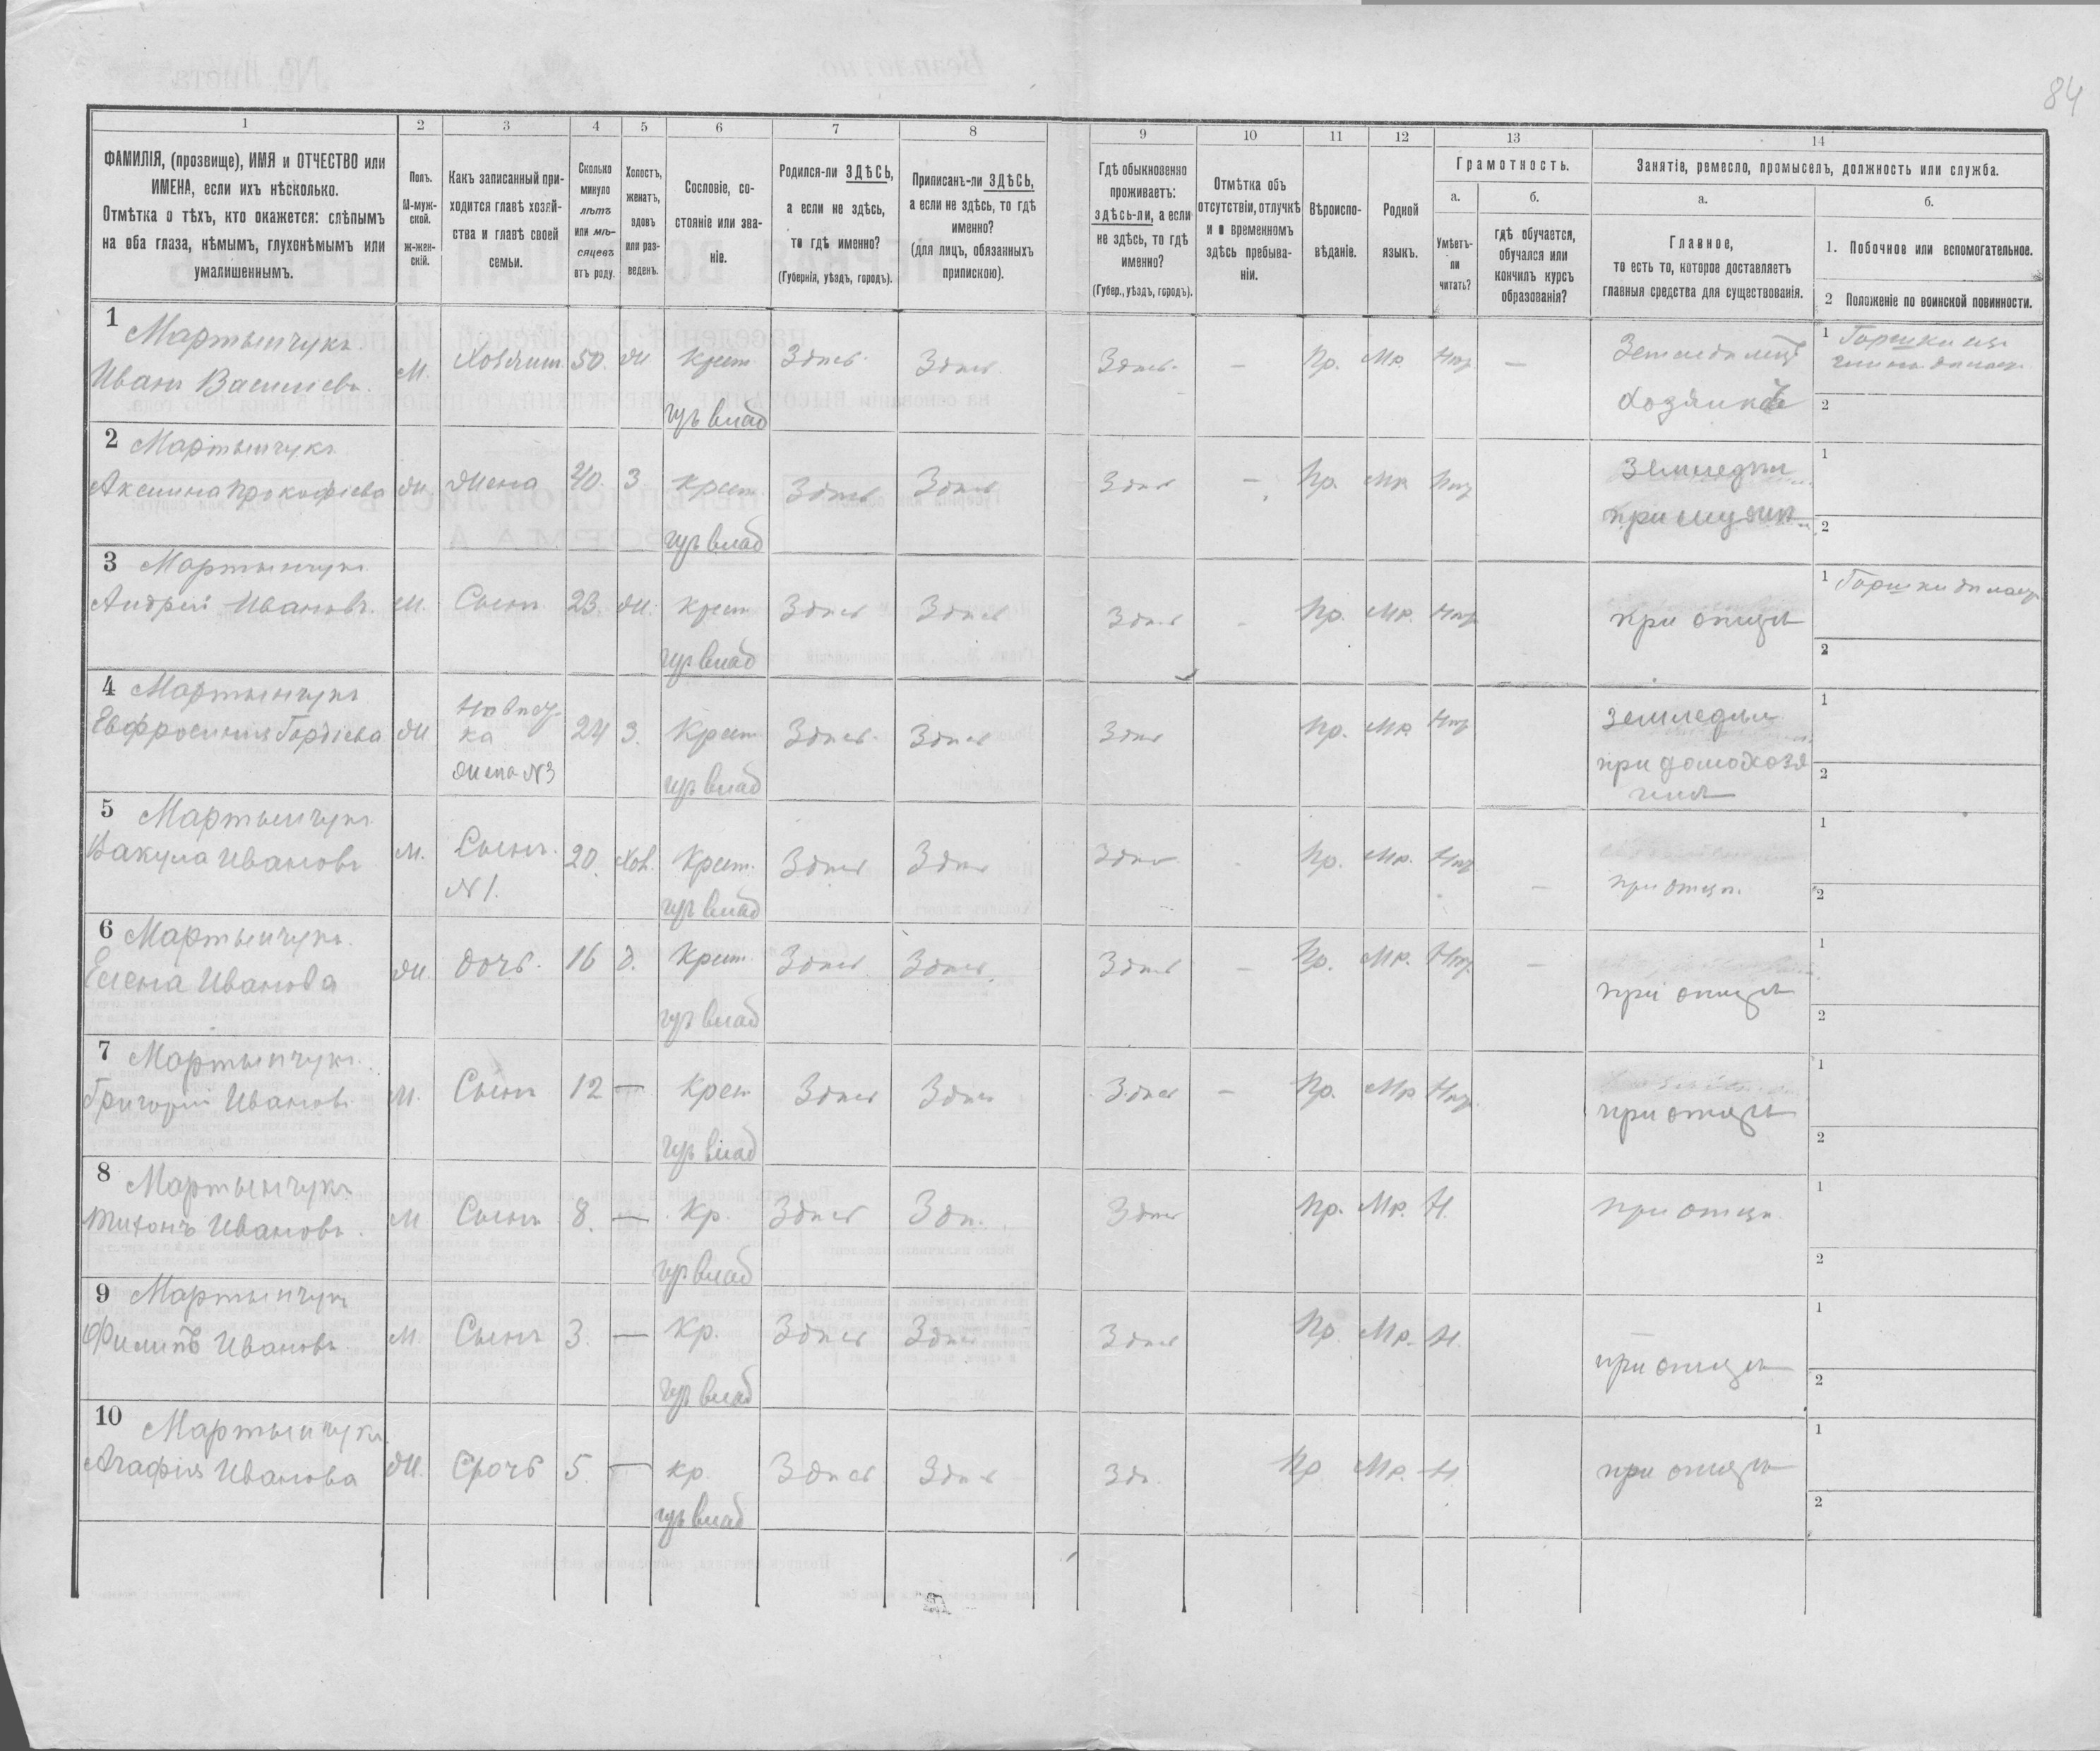 84
1 2 3 4 5 6 7 8 9 10 11 12 13 14
ФАМИЛІЯ, (прозвище), ИМЯ и ОТЧЕСТВО или
ИМЕНА, если ихъ нѣсколько.
Отмѣтка о тѣхъ, кто окажется: слѣпымъ
на оба глаза, нѣмымъ, глухонѣмымъ или
умалишеннымъ.
Полъ.
М-муж-
ской.
Ж-жен-
скій.
Какъ записанный при-
ходится главѣ хозяй-
ства и главѣ своей
семьи.
Сколько
минуло
лѣтъ
или мѣ-
сяцевъ
отъ роду.
Холостъ,
женатъ,
вдовъ
или раз-
веденъ.
Сословіе, со-
стояніе или зва-
ніе.
Родился-ли ЗДѢСЬ,
а если не здѣсь,
то гдѣ именно?
(Губернія, уѣздъ, городъ).
Приписанъ-ли ЗДѢСЬ,
а если не здѣсь, то гдѣ
именно?
(для лицъ, обязанныхъ
припискою).
Гдѣ обыкновенно
проживаетъ:
здѣсь-ли, а если
не здѣсь, то гдѣ
именно?
(Губер., уѣздъ, городъ).
Отмѣтка объ
отсутствіи, отлучкѣ
и о временномъ
здѣсь пребыва-
ніи.
Вѣроиспо-
вѣданіе.
Родной
языкъ.
Грамотность.
а.
Умѣетъ-
ли
читать?
б.
гдѣ обучается,
обучался или
кончилъ курсъ
образованія?
Занятіе, ремесло, промыселъ, должность или служба.
а.
Главное,
то есть то, которое доставляетъ
главныя средства для существованія.
б.
1. Побочное или вспомогательное.
2 Положеніе по воинской повинности.
1 Мартынчукъ
Иванъ Васильевъ М. Хозяин 50. Ж Крест. Здѣсь. Здѣсь. Здѣсь. — Пр. Мр. Нѣт —
Хозяинъ
1 Горшки изъ
2
2 Мартынчукъ
Аксинья Прокофіева Ж Жена 40. З Крест. Здѣсь Здѣсь Здѣсь — Пр. Мр. Нѣт
1
при мужѣ
2
3 Мартынчукъ
Андрей Ивановъ. М. Сынъ 23. Ж. Крест. Здѣсь Здѣсь Здѣсь - Пр. Мр. Нѣт
при отцѣ
1 Горшки дѣлает
2
4 Мартынчукъ
Евфросинія Гордіева Ж Невѣст-
ка
жена №3
24 З. Крест. Здѣсь. Здѣсь Здѣсь Пр. Мр. Нѣт
1
при домохозя
2
5 Мартынчукъ
Вакула Ивановъ М. Сынъ.
№1.
20. Хол. Крест. Здѣсь Здѣсь Здѣсь - Пр. Мр. Нѣт —
при отцѣ.
1
2
6 Мартынчукъ.
Елена Иванова Ж. дочь. 16 д. Крест. Здѣсь Здѣсь. Здѣсь — Пр. Мр. Нѣт. —
при отцѣ
1
2
7 Мартынчукъ.
Григорій Ивановъ. М. Сынъ 12 — Крест Здѣсь Здѣсь Здѣсь — Пр. Мр Нѣт.
при отцѣ
1
2
8 Мартынчукъ
Тихонъ Ивановъ. М Сынъ 8. — Кр. Здѣсь Здѣ. Здѣсь Пр. Мр. Н.
при отцѣ
1
2
9 Мартынчукъ
Филипъ Ивановъ М. Сынъ 3. — Кр. Здѣсь Здѣсь Здѣсь Пр. Мр. Н.
при отцѣ
1
2
10 Мартынчукъ
Агафія Иванова Ж. 5. — кр. Здѣсь Здѣсь Здѣ. Пр Мр. Н
при отцѣ
1
2